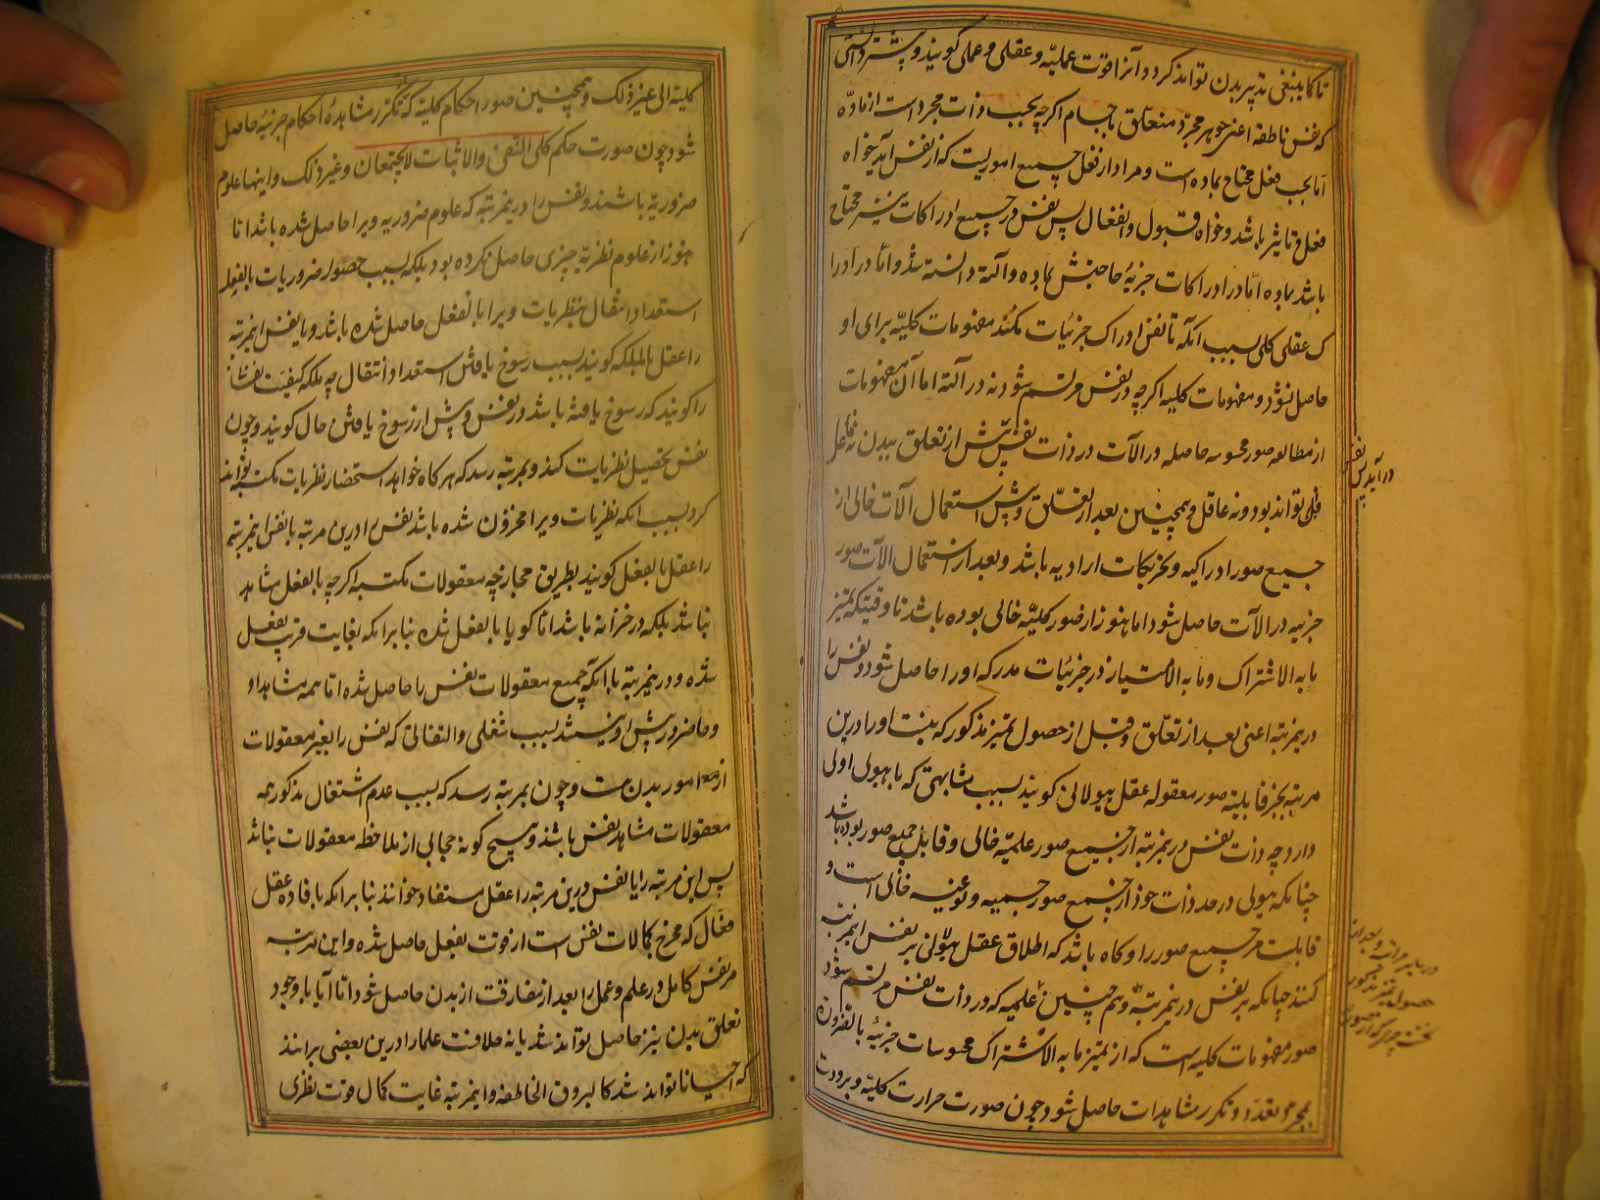 تا کما ینبغی تدبیر بدن تواند کرد و آنرا قوت عملیه و عقلی و عملی گویند و پیشتر دانستی
که نفس ناطقه اعنی جوهر مجرد متعلق باجسام اگرچه بحسب ذات مجرد است از ماده
اما بحسب فعل محتاج بماده است و مراد از فعل جمیع اموریست که از نفس آید خواه
فعل و تاثیر باشد و خواه قبول و انفعال پس نفس در جمیع ادراکات نیز محتاج
باشد بماده اما در ادراکات جزئیه حاجتش بماده و آلت دانسته شد و اما در ادرا
ک عقلی کلی بسبب آنکه تا نفس ادراک جزئیات نکند مفهومات کلیه برای او
حاصل نشود و مفهومات کلیه اگرچه در نفس مرتسم شود نه در آلت اما آن مفهومات
از مطالعه صور محسوسه حاصله در آلات در ذات نفس پس نفس پیش از تعلق ببدن نه فاعل
فعلی تواند بود و نه عاقل و همچنین بعد از تعلق و پیش از استعمال آلات خالی از
جمیع صور ادراکیه و تحریکات ارادیه باشد و بعد از استعمال آلات صور
جزئیه در آلات حاصل شود اما هنوز از صور کلیه خالی بوده باشد تا وقتیکه تمیز
ما به الاشتراک و ما به الامتیاز در جزئیات مدرکه او را حاصل شود و نفس را
درینمرتبه اعنی بعد از تعلق و قبل از حصول تمیز مذکور که نیست او را درین
مرتبه بجز قابلیت صور معقوله عقل هیولانی گویند بسبب مشابهتی که با هیولی اولی
دارد چه ذات نفس درینمرتبه از جمیع صور علمیه خالی و قابل جمیع صور بوده باشد
چنانکه هیولی در حد ذات خود از جمیع صور جسمیه و نوعیه خالی است و
قابلست مر جمیع صور را و گاه باشد که اطلاق عقل هیولانی بر نفس اینمرتبه
کنند چنانکه بر نفس درینمرتبه و هم چنین علمیه که در ذات نفس مرتسم شود
صور مفهومات کلیه است که از تمیز ما به الاشتراک محسوسات جزئیه بالضروره
بمجرد تعدد و تکرر مشاهدات حاصل شود چون صورت حرارت کلیه و برودت
در آید پس نفس
حصول تمیز مذکور
کلیه الی غیر ذلک و همچنین صور احکام کلیه که بتکرر مشاهده احکام جزئیه حاصل
شود چون صورت حکم کلی النفی والاثبات لا یجتمعان و غیر ذلک و اینها علوم
ضروریه باشند و نفس را درینمرتبه که علوم ضروریه ویرا حاصل شده باشد اما
هنوز از علوم نظریه چیزی حاصل نکرده بود بلکه بسبب حصول ضروریات بالفعل
استعداد انتقال بنظریات ویرا بالفعل حاصل شده باشد و یا نفس اینمرتبه
را عقل بالملکه گویند بسبب رسوخ یافتن استعداد انتقال چه ملکه کیفیت نفسانی
را گویند که رسوخ یافته باشد در نفس و پیش از رسوخ یافتن حال گویند و چون
نفس تحصیل نظریات کند و بمرتبه رسد که هر گاه خواهد استحضار نظریات مکتسبه تواند
کرد بسبب آنکه نظریات ویرا مخزون شده باشد نفس را درین مرتبه یا نفس اینمرتبه
را عقل بالفعل گویند بطریق مجاز چه معقولات مکتسبه اگرچه بالفعل مشاهد
نباشد بلکه در خزانه باشد اما گویا بالفعل شده بنا بر آنکه بغایت قریب بفعل
شده و درینمرتبه با آنکه جمیع معقولات نفس را حاصل شده اما همه مشاهد او
و حاضر در پیش او نیستند بسبب شغلی و التفاتی که نفس را بغیر معقولات
از امور بدن هست و چون بمرتبه رسد که بسبب عدم اشتغال مذکور همه
معقولات مشاهد نفس باشند و هیچ گونه حجابی از ملاحظه معقولات نباشد
پس این مرتبه را یا نفس درین مرتبه را عقل مستفاد خوانند بنا بر آنکه بافاده عقل
فعال که مخرج کمالات نفس است از قوت بفعل حاصل شده و این مرتبه
مر نفس کامل در علم و عمل را بعد از مفارقت از بدن حاصل شود اما آیا با وجود
تعلق بدن نیز حاصل تواند شد یا نه خلافت علما را درین بعضی برانند
که احیانا تواند شد کالبروق الخاطفه و اینمرتبه غایت کمال قوت نظری